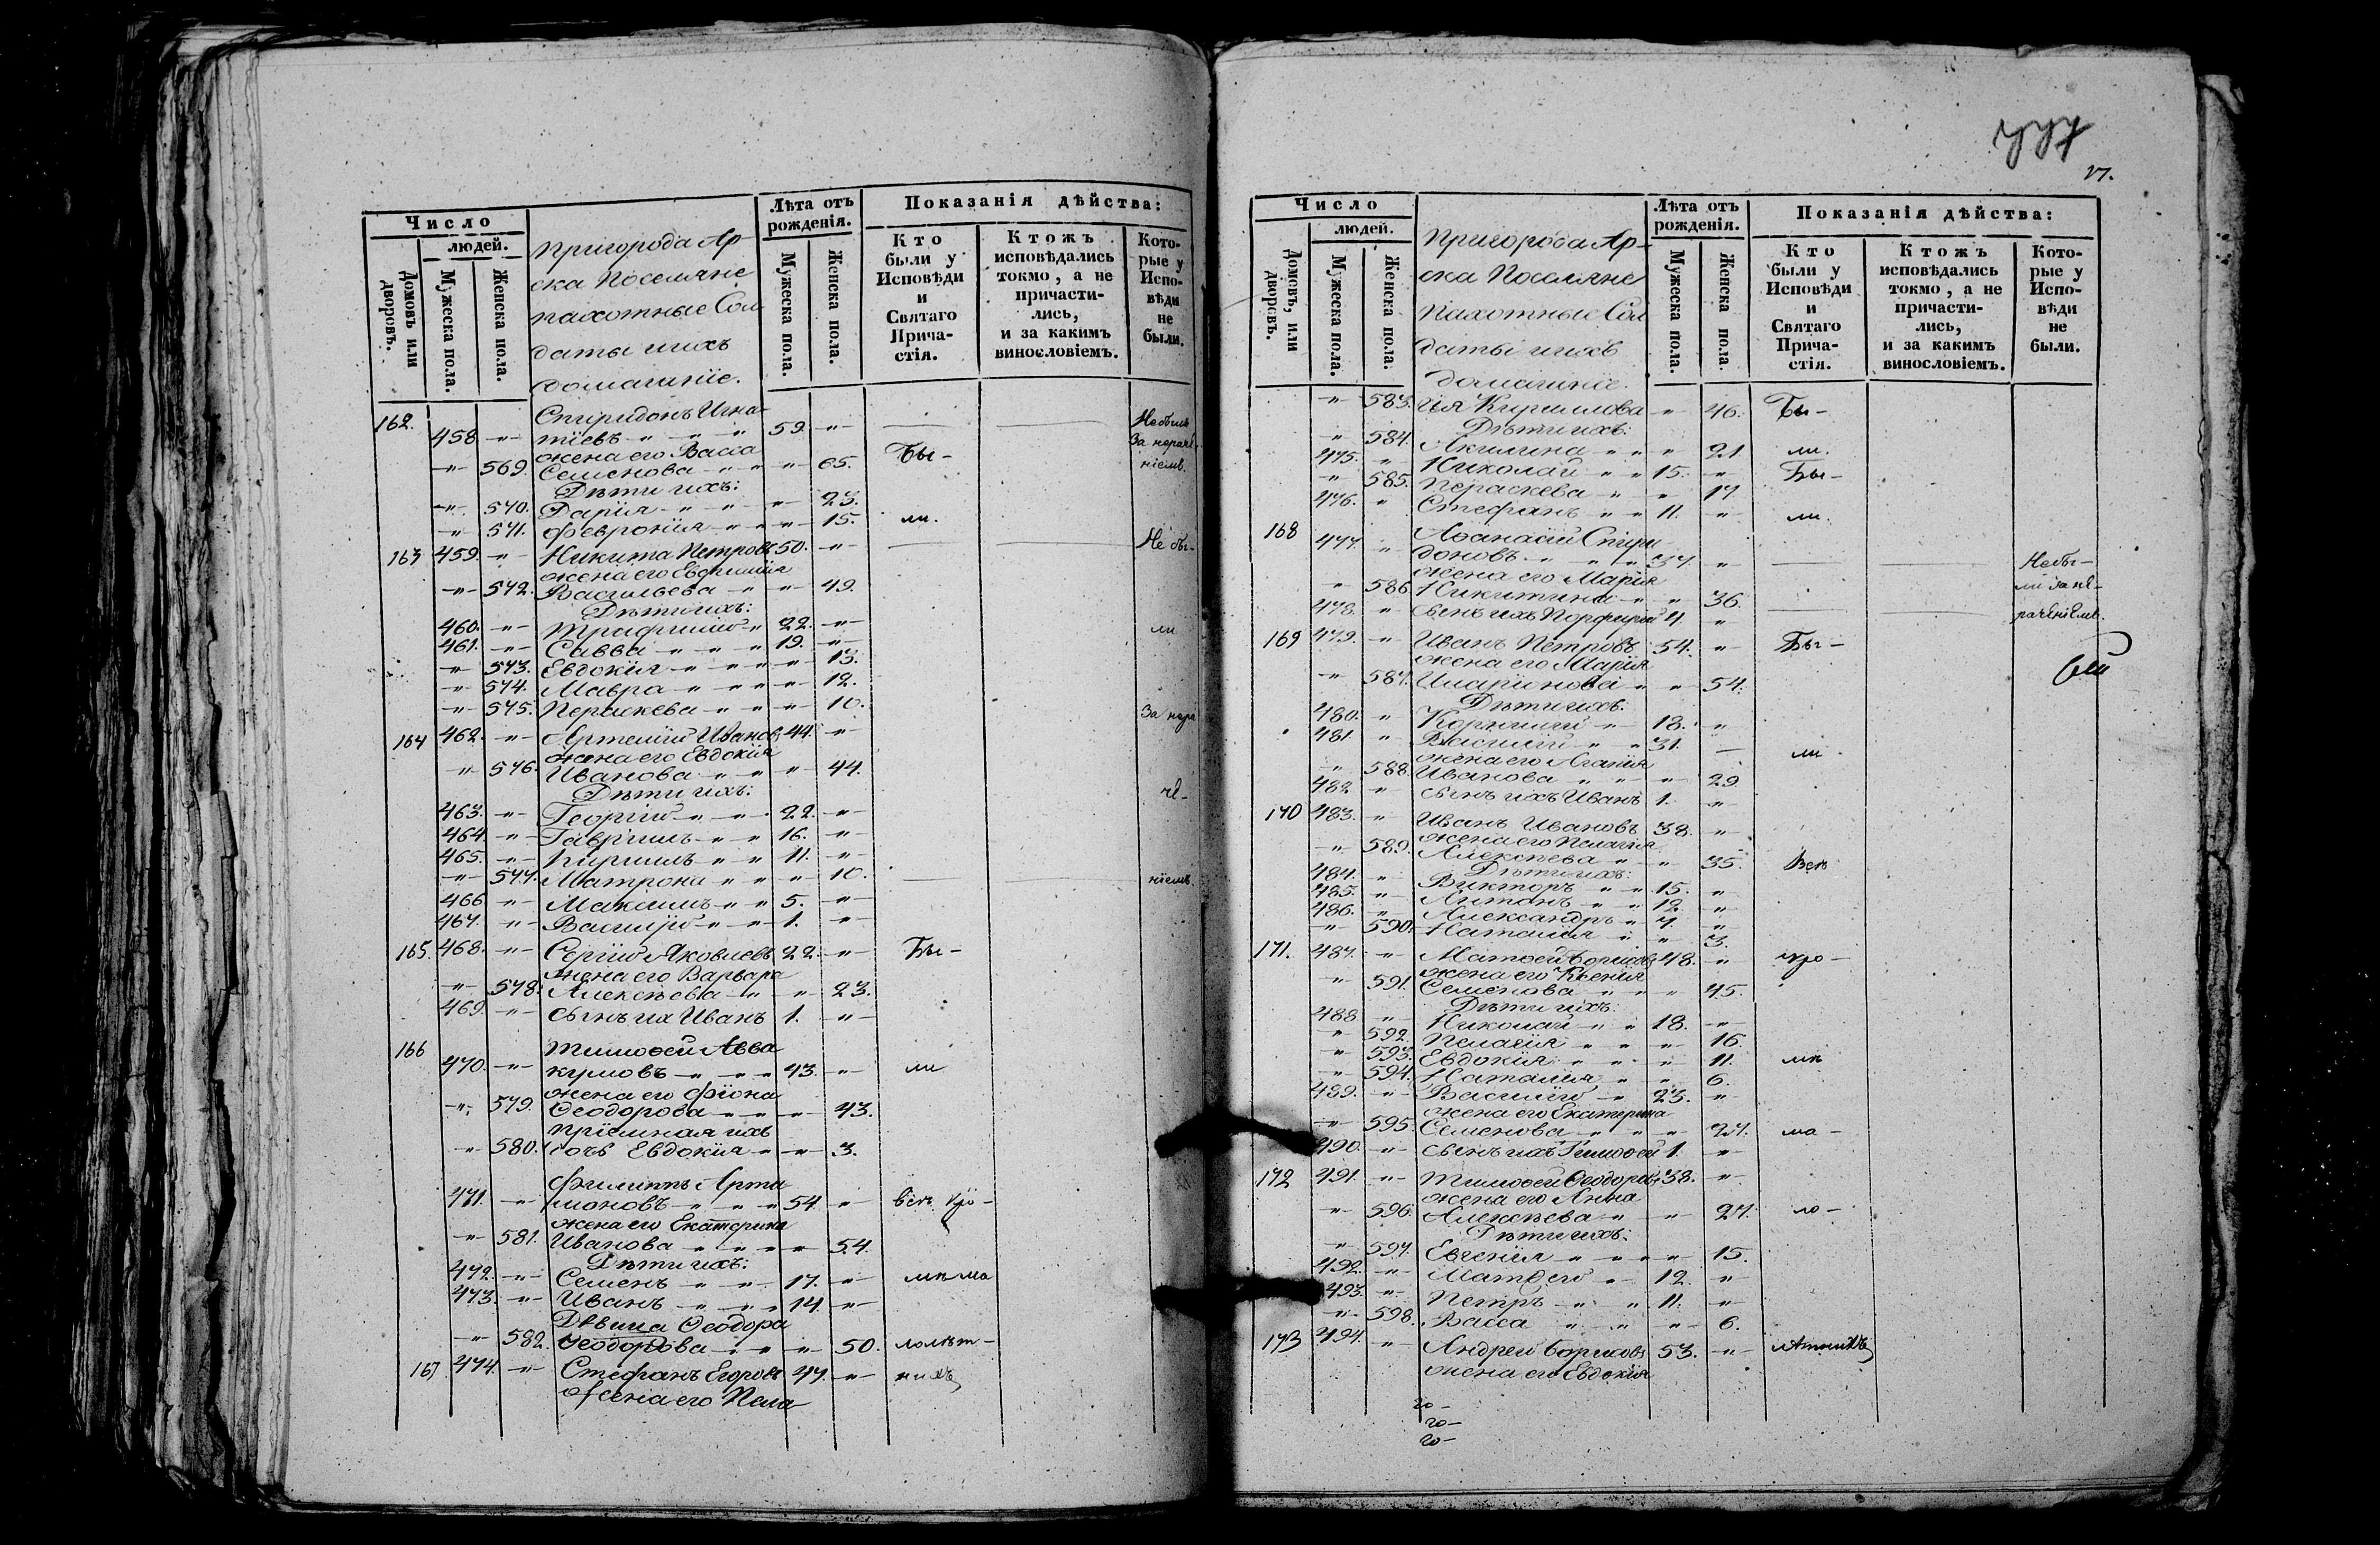 Число
людей.
Домовъ или дворовъ.
Мужеска пола.
Женска пола.
Пригорода Ар-
ска Поселяне
пахотные Сол
даты и ихъ
домашніе.
Лѣта отъ рожденія.
Мужеска пола.
Женска пола.
Показанія дѣйства:
Кто были у Исповѣди и Святаго Прича- стія.
Ктожъ исповѣдались токмо, а не причасти- лись, и за какимъ винословіемъ.
Кото- рые у Испо- вѣди не были.
162. Спиридонъ Игна-
458 -"- тіевъ " " " 59. -"-
жена его Васса
-"- 569. Семенова " " -"- 65. Бы-
ніемъ.
Дѣти ихъ:
-"- 570. Дарія " " -"- 23.
-"- 571. Февронія " " -"- 15. ли.
163 459. -"- Никита Петровъ 50. -"- Не бы-
жена его Евфимія
-"- 572. Васильева " -"- 49.
Дѣти ихъ:
460. -"- Трифилій " 22. -"- ли
461. -"- Савва " " " 19. -"-
-"- 573. Евдокія " " " -"- 13.
-"- 574. Мавра " " " -"- 12.
-"- 575. Параскева " " -"- 10.
За нера
164 462. -"- Артемій Ивановъ 44. -"-
жена его Евдокія
-"- 576. Иванова " " -"- 44.
Дѣти ихъ:
че-
463. -"- Георгій " " 22. -"-
464. -"- Гавріилъ " " 16. -"-
465. -"- Кириллъ " " 11. -"-
-"- 577. Матрона " " " 10. ніемъ
466 -"- Максимъ " " 5. -"-
467. -"- Василій " " 1. -"-
165. 468. -"- Сергій Яковлевъ 22. -"- Бы-
жена его Варвара
-"- 578. Алексѣева " " 23.
469. -"- сынъ их Иванъ 1. -"-
166 Тимоѳей Авва
470. -"- кумовъ " " " 43. -"- ли
жена его Фіона
-"- 579. Ѳеодорова " " -"- 43.
пріемная ихъ
-"- 580. дочь Евдокія " -"- 3.
Филиппъ Арта
471. -"- моновъ " " " 54 -"- всѣ кро-
жена его Екатерина
-"- 581. Иванова " " " " 54.
Дѣти ихъ:
472. -"- Семенъ " " 17. -"- мѣ ма
473. -"- Иванъ " " " 14. -"-
Дѣвица Ѳеодора
-"- 582. Ѳеодорова " " -"- 50. лолѣт-
167 474. -"- Стефанъ Егоровъ 47. -"- нихъ
жена его Пела
17.
Число
людей.
Домовъ, или дворовъ.
Мужеска пола.
Женска пола.
Пригорода Ар-
ска Поселяне
Пахотные Сол
даты и ихъ
домашніе.
Лѣта отъ рожденія.
Мужеска пола.
Женска пола.
Показанія дѣйства:
Кто были у Исповѣди и Святаго Прича- стія.
Ктожъ исповѣдались токмо, а не причасти- лись, и за какимъ винословіемъ.
Кото- рые у Испо- вѣди не были.
-"- 583. гія Кириллова -"- 46. Бы-
Дѣти ихъ:
-"- 584. Акилина " " " 21 ли.
475. " Николай " " 15. -"- Бы-
-"- 585. Параскева " -"- 17
476. " Стефанъ " " 11. -"- ли.
168 Аѳанасій Спири
477. " доновъ " " " 37 " Не бы-
жена его Марія
-"- 586 Никитина " " 36. ли за не-
478. " сынъ ихъ Порфирій 4. " раченіемъ.
169 479. -"- Иванъ Петровъ 54. " Бы-
жена его Марія
-"- 587. Иларіонова " " 54.
Дѣти ихъ.
480. " Корнилій " 18. "
481. " Василій " " 31. - ли
жена его Агапія
-"- 588. Иванова " " -"- 29
482 " сынъ ихъ Иванъ 1. "
170 483. " Иванъ Ивановъ 38. "
жена его Пелагія
-"- 589. Алексѣева " " 35. Всѣ
Дѣти ихъ:
484. " Викторъ " " 15. "
485. " Антонъ " " 12. "
486. " Александръ " 7. "
-"- 590. Наталія " " 3.
171. 487. -"- Матѳей Борисовъ 48. " кро-
жена его Ксенія
-"- 591. Семенова " " " 45.
Дѣти ихъ:
488. -"- Николай " " 18. -"-
" 592. Пелагія " " -"- 16.
" 593. Евдокія " " " 11. мѣ
-"- 594. Наталія " " 6.
489. -"- Василій " 23. "
жена его Екатерина
-"- 595. Семенова " " -"- 27. ма-
490. -"- сынъ ихъ Тимоѳей 1. -"-
172 491. -"- Тимоѳей Ѳеодоровъ 38. -"-
жена его Анна
-"- 596. Алексѣева " -"- 27. ло-
Дѣти ихъ:
-"- 597. Евгенія " " " " 15.
492. -"- Матѳей " 12. "
493. -"- Петръ " " 11. "
-"- 598. Васса " " " 6.
173 494. -"- Андрей Борисовъ 53. -"- лѣтнихъ
жена его Евдокія